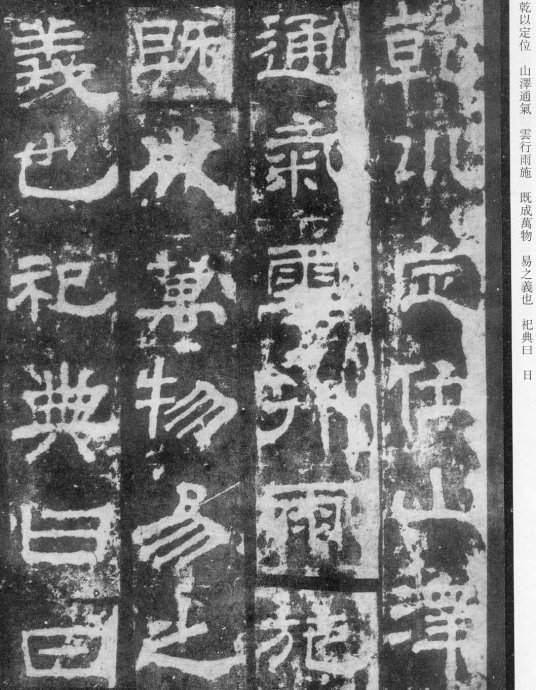 乾以定位　山澤通氣　雲行雨施　既成萬物　易之義也　祀典曰　日
乾㕥定位山澤
通氣雲行雨施
既成萬物易之
義也祀典曰日